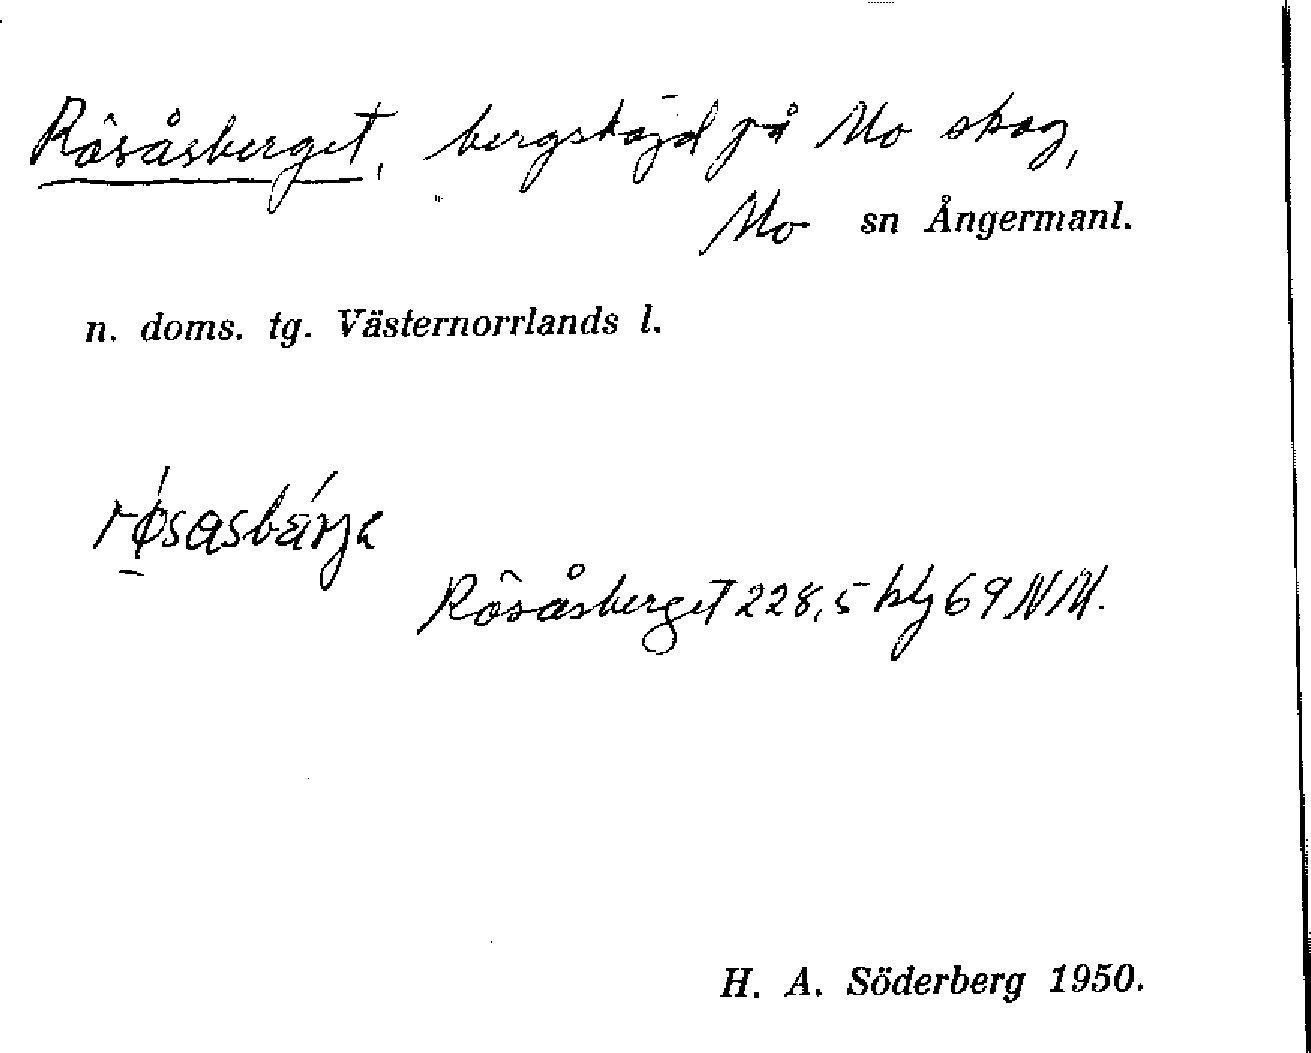 Rösåsberget, bergshöjd på Mo skog,
Mo sn Ångermanl.
n. doms. tg. Västernorrlands l.
røsasbärjə
Rösåsberget 228,5 hbl 69 NM.
H. A. Söderberg 1950.